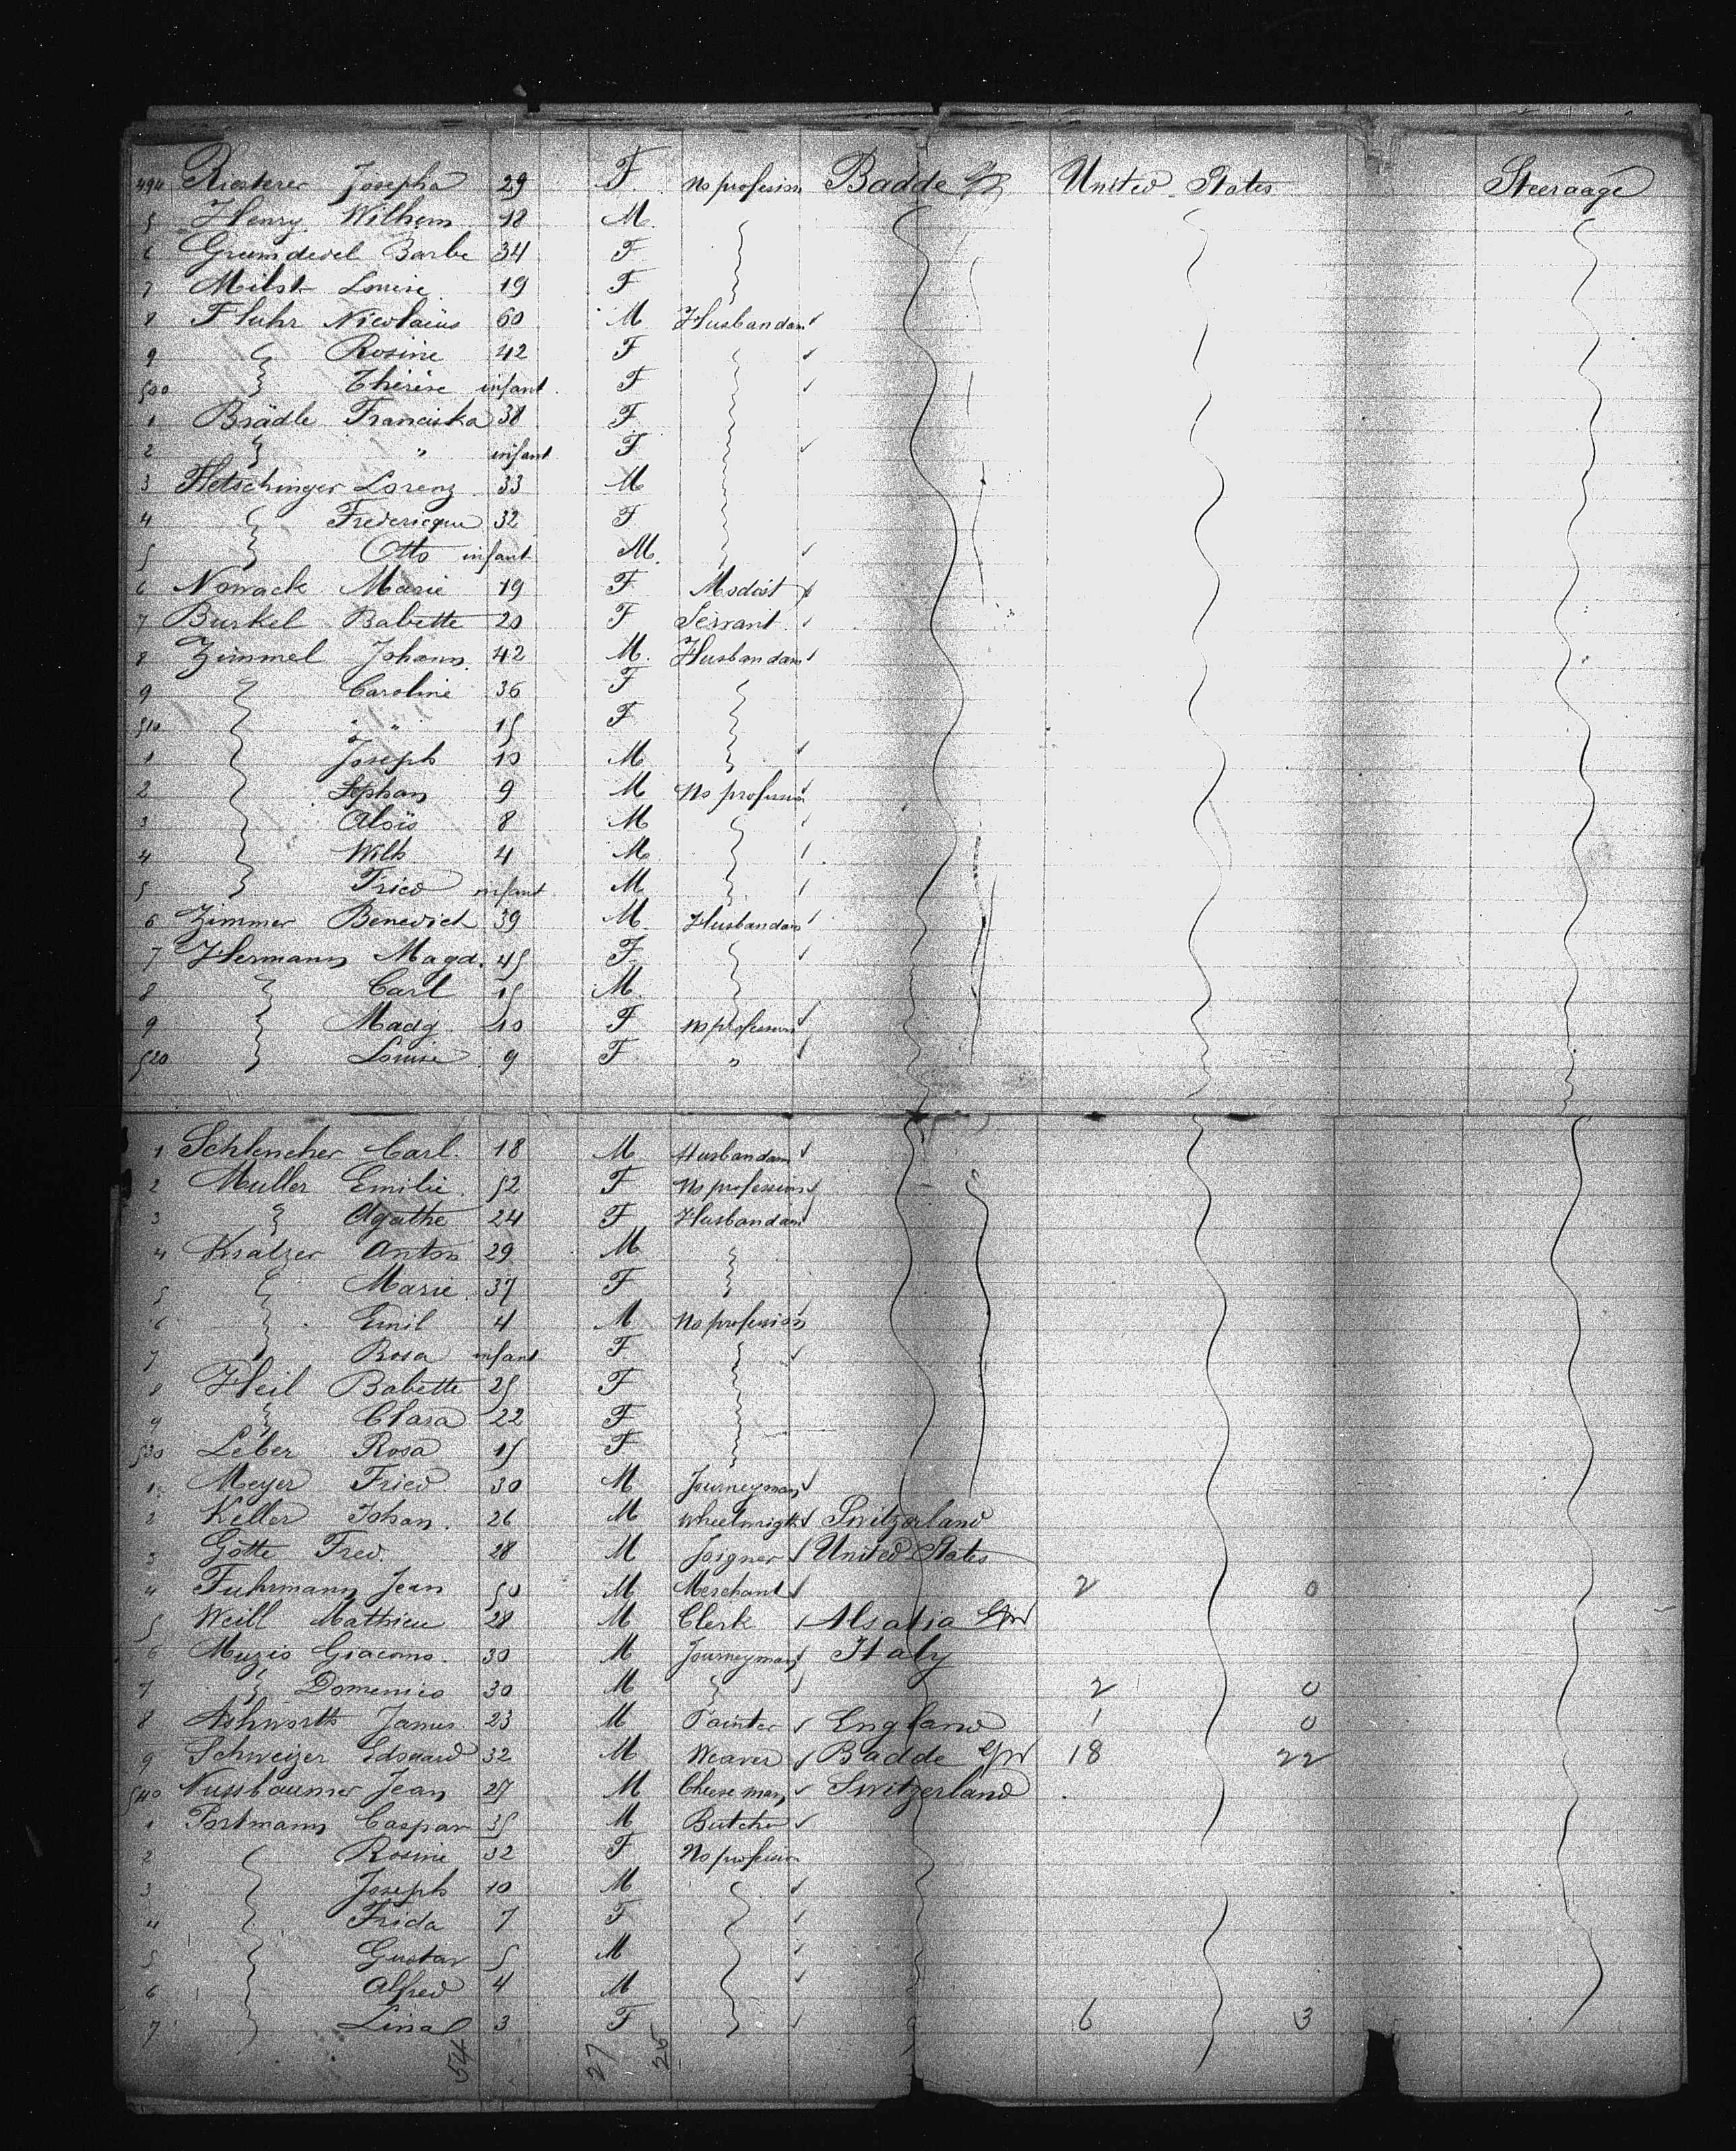 494 Riesterer Josepha 29 F. No profession Badde United States Steeraage
5 Henry Wilhem 18 M.
6 Grumdevel Barbe 34 F
7 Milst Louise 19 F
8 Fluhr Nicolaüs 60 M Husbandam
9 Rosine 42 F
500 Thérèse infant F
1 Brädle Franciska 38 F
2 " infant F
3 Hetschinger Lorenz 33 M
4 Fredericque 32 F
5 Otto infant M.
6 Nowack Marie 19 F Modist
7 Burkel Babette 20 F Servant
8 Zimmel Johann. 42 M. Husbandam
9 Caroline 36 F
510 " " 15 F
1 Joseph 10 M
2 Stephan 9 M No profession
3 Aloïs 8 M
4 Wilh 4 M
5 Fried infant M
6 Zimmer Benedict 39 M. Husbandam
7 Hermann Magd. 45 F
8 Carl 15 M
9 Madg. 10 F No profession
520 Louise 9 F "
1 Schlencher Carl. 18 M Husbandam
2 Muller Emilie. 52 F No profession
3 Agathe 24 F Husbandam
4 Kratzer Anton 29 M
5 Marie 37 F
6 Emil 4 M No profession
7 Rosa infant F
8 Heil Babette 25 F
9 Clara 22 F
530 Leber Rosa 15 F
1 Meyer Fried. 30 M Journeyman
2 Keller Johan. 26 M Wheelwright Switzerland
3 Götte Fred. 28 M Joigner United States
4 Fuhrmann Jean 50 M Merchant 2 0
5 Weill Mathieu 28 M Clerk Alsatia Ger
6 Muzio Giacomo. 30 M Journeyman Italy
7 Domenico 30 M 2 0
8 Ashworth James 23 M Painter England 1 0
9 Schweizer Edouard 32 M Weaver Badde Ger 18 22
540 Nussbaumer Jean 27 M Cheese man Switzerland
1 Portmann Caspar 35 M Butcher
2 Rosine 32 F No profession
3 Joseph 10 M
4 Frida 7 F
5 Gustav 5 M
6 Alfred 4 M
7 Lina 3 F 6 3
54 27 26